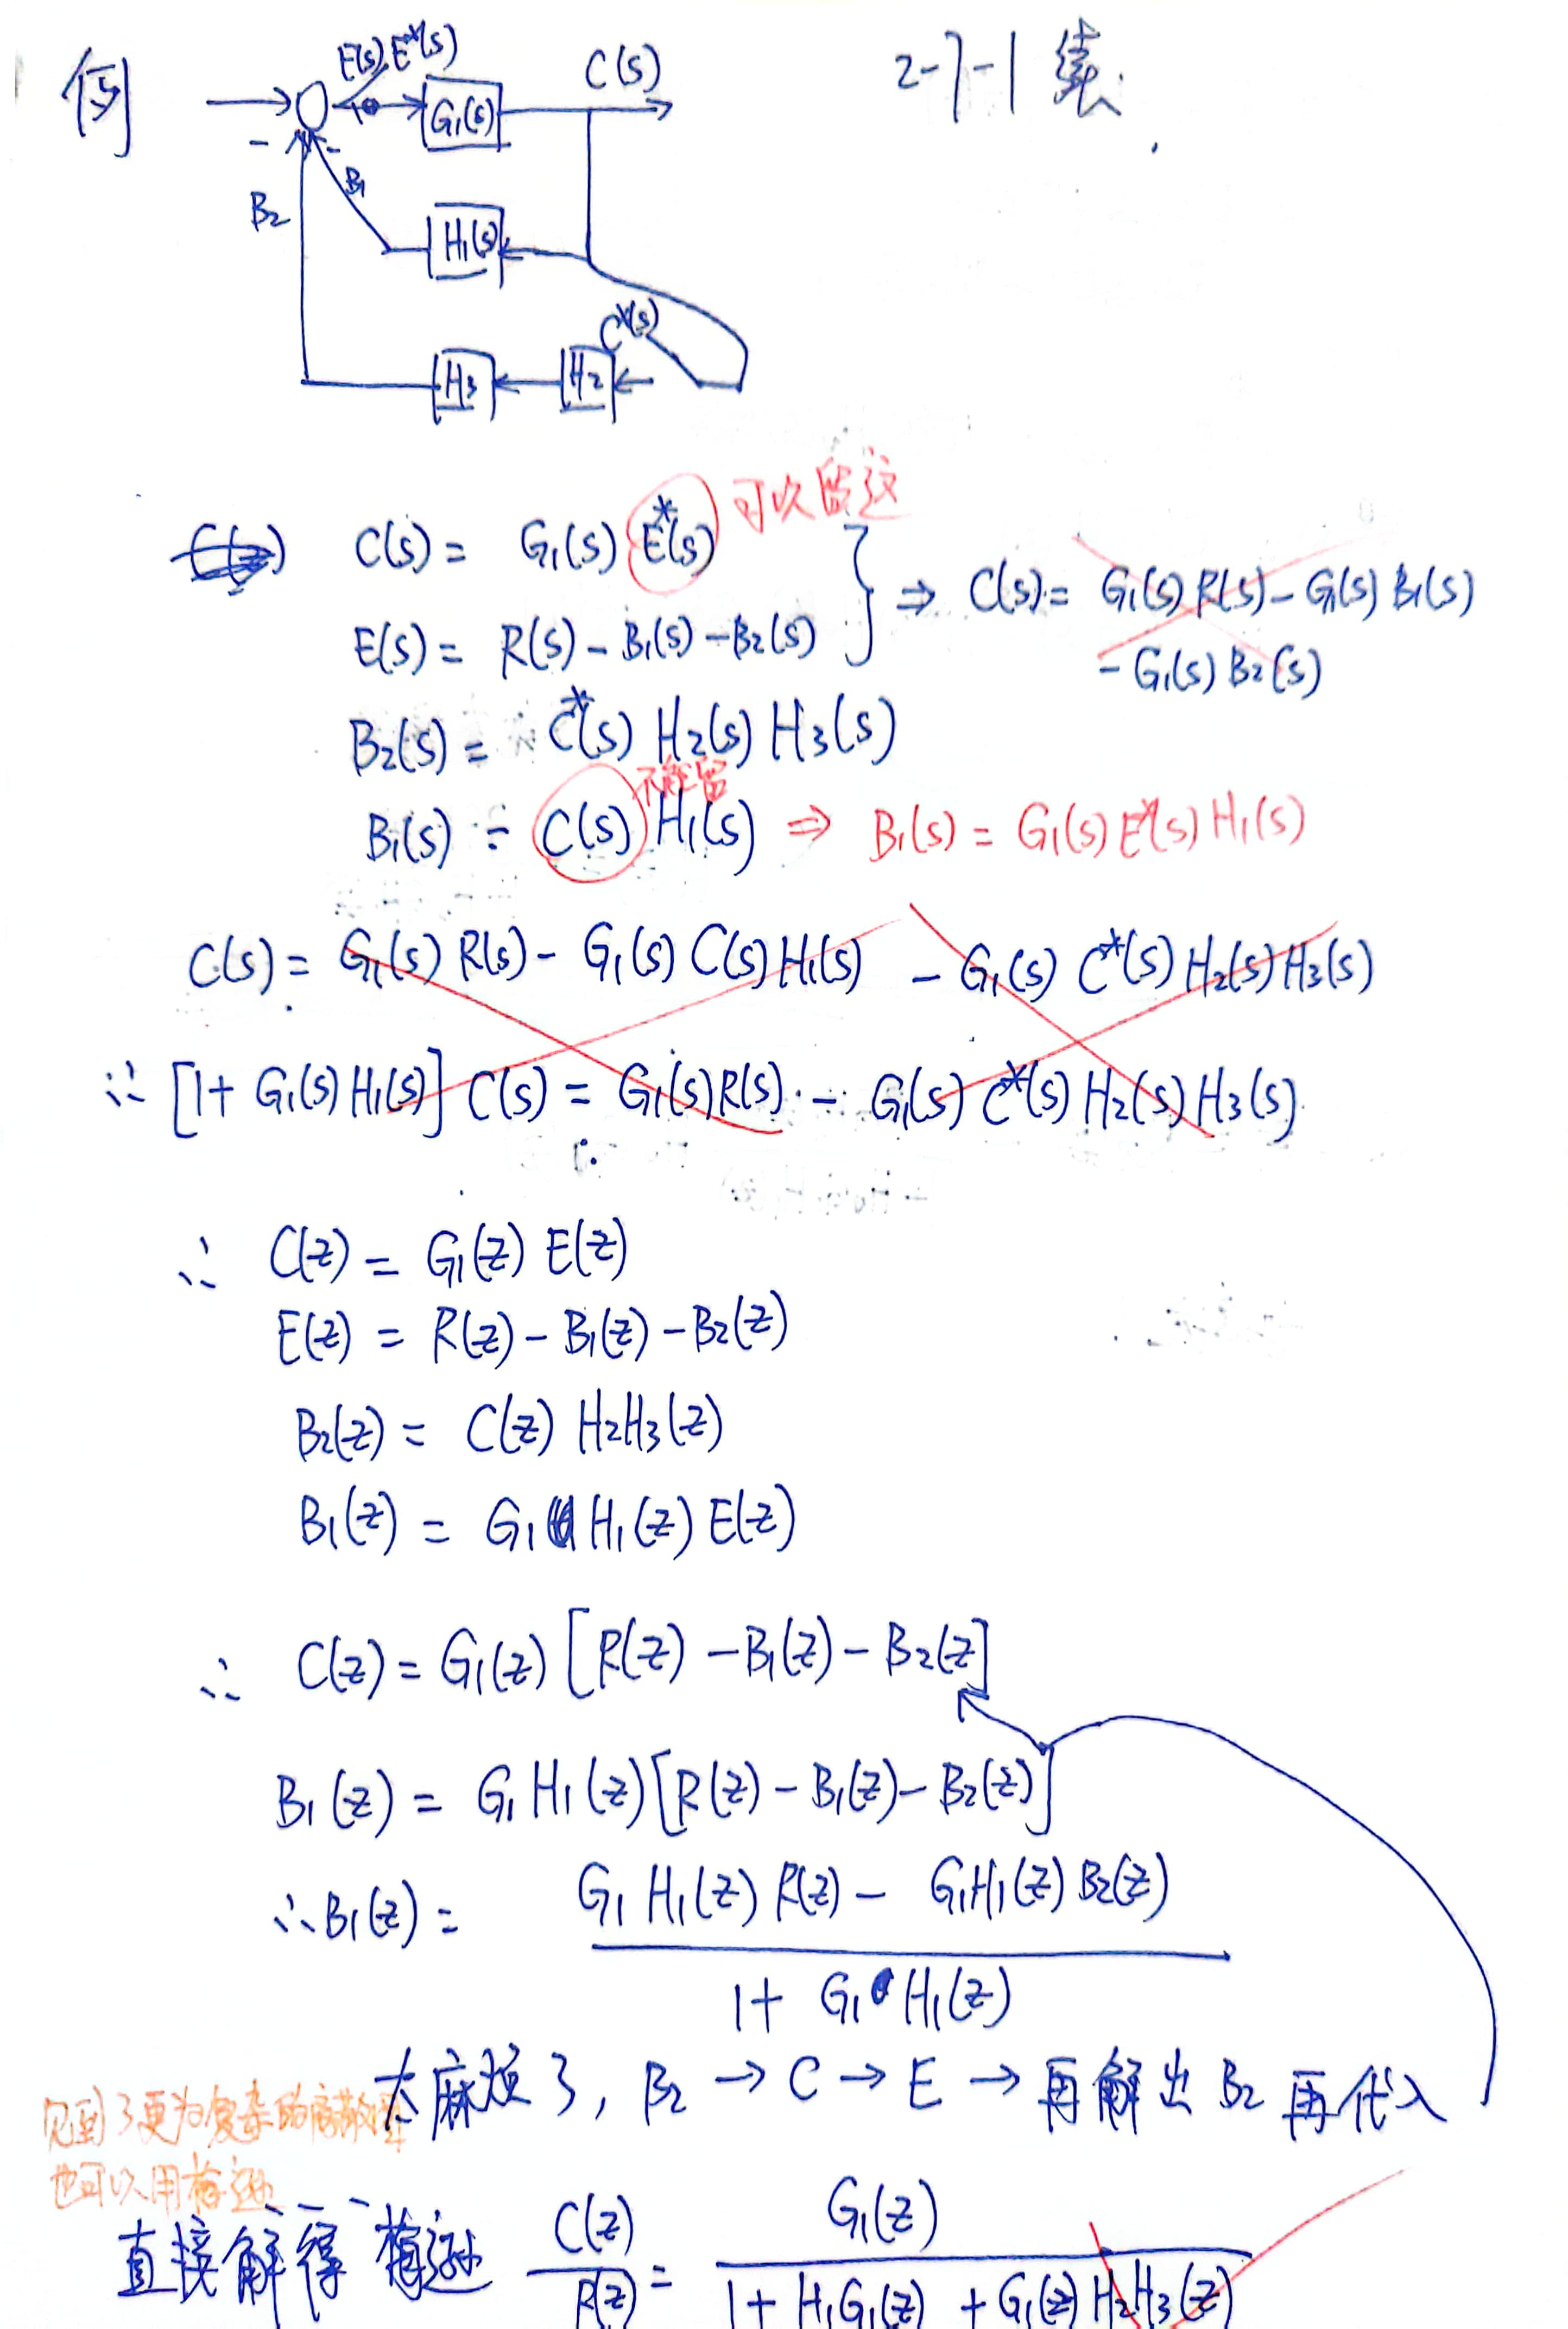 例
2-7-1 续
E(s) E*(s)
C(s)
G₁(s)
-
-
B₁
B₂
H₁(s)
C*(s)
H₃
H₂
可以留这
C(s) = G₁(s) E*(s)
E(s) = R(s) - B₁(s) - B₂(s)
⇒ C(s) = G₁(s) R(s) - G₁(s) B₁(s)
- G₁(s) B₂(s)
B₂(s) = C*(s) H₂(s) H₃(s)
不能留
B₁(s) = C(s) H₁(s) ⇒ B₁(s) = G₁(s) E*(s) H₁(s)
C(s) = G₁(s) R(s) - G₁(s) C(s) H₁(s) - G₁(s) C*(s) H₂(s) H₃(s)
∴ [1 + G₁(s) H₁(s)] C(s) = G₁(s) R(s) - G₁(s) C*(s) H₂(s) H₃(s)
∴ C(z) = G₁(z) E(z)
E(z) = R(z) - B₁(z) - B₂(z)
B₂(z) = C(z) H₂H₃(z)
B₁(z) = G₁H₁(z) E(z)
∴ C(z) = G₁(z) [R(z) - B₁(z) - B₂(z)]
B₁(z) = G₁H₁(z) [R(z) - B₁(z) - B₂(z)]
∴ B₁(z) =
G₁H₁(z) R(z) - G₁H₁(z) B₂(z)
1 + G₁H₁(z)
太麻烦了, B₂ → C → E → 再解出 B₂ 再代入
见到了更为复杂的离散
也可以用梅逊
直接解得 梅逊 C(z)/R(z) = G₁(z) / 1 + H₁G₁(z) + G₁(z) H₂H₃(z)